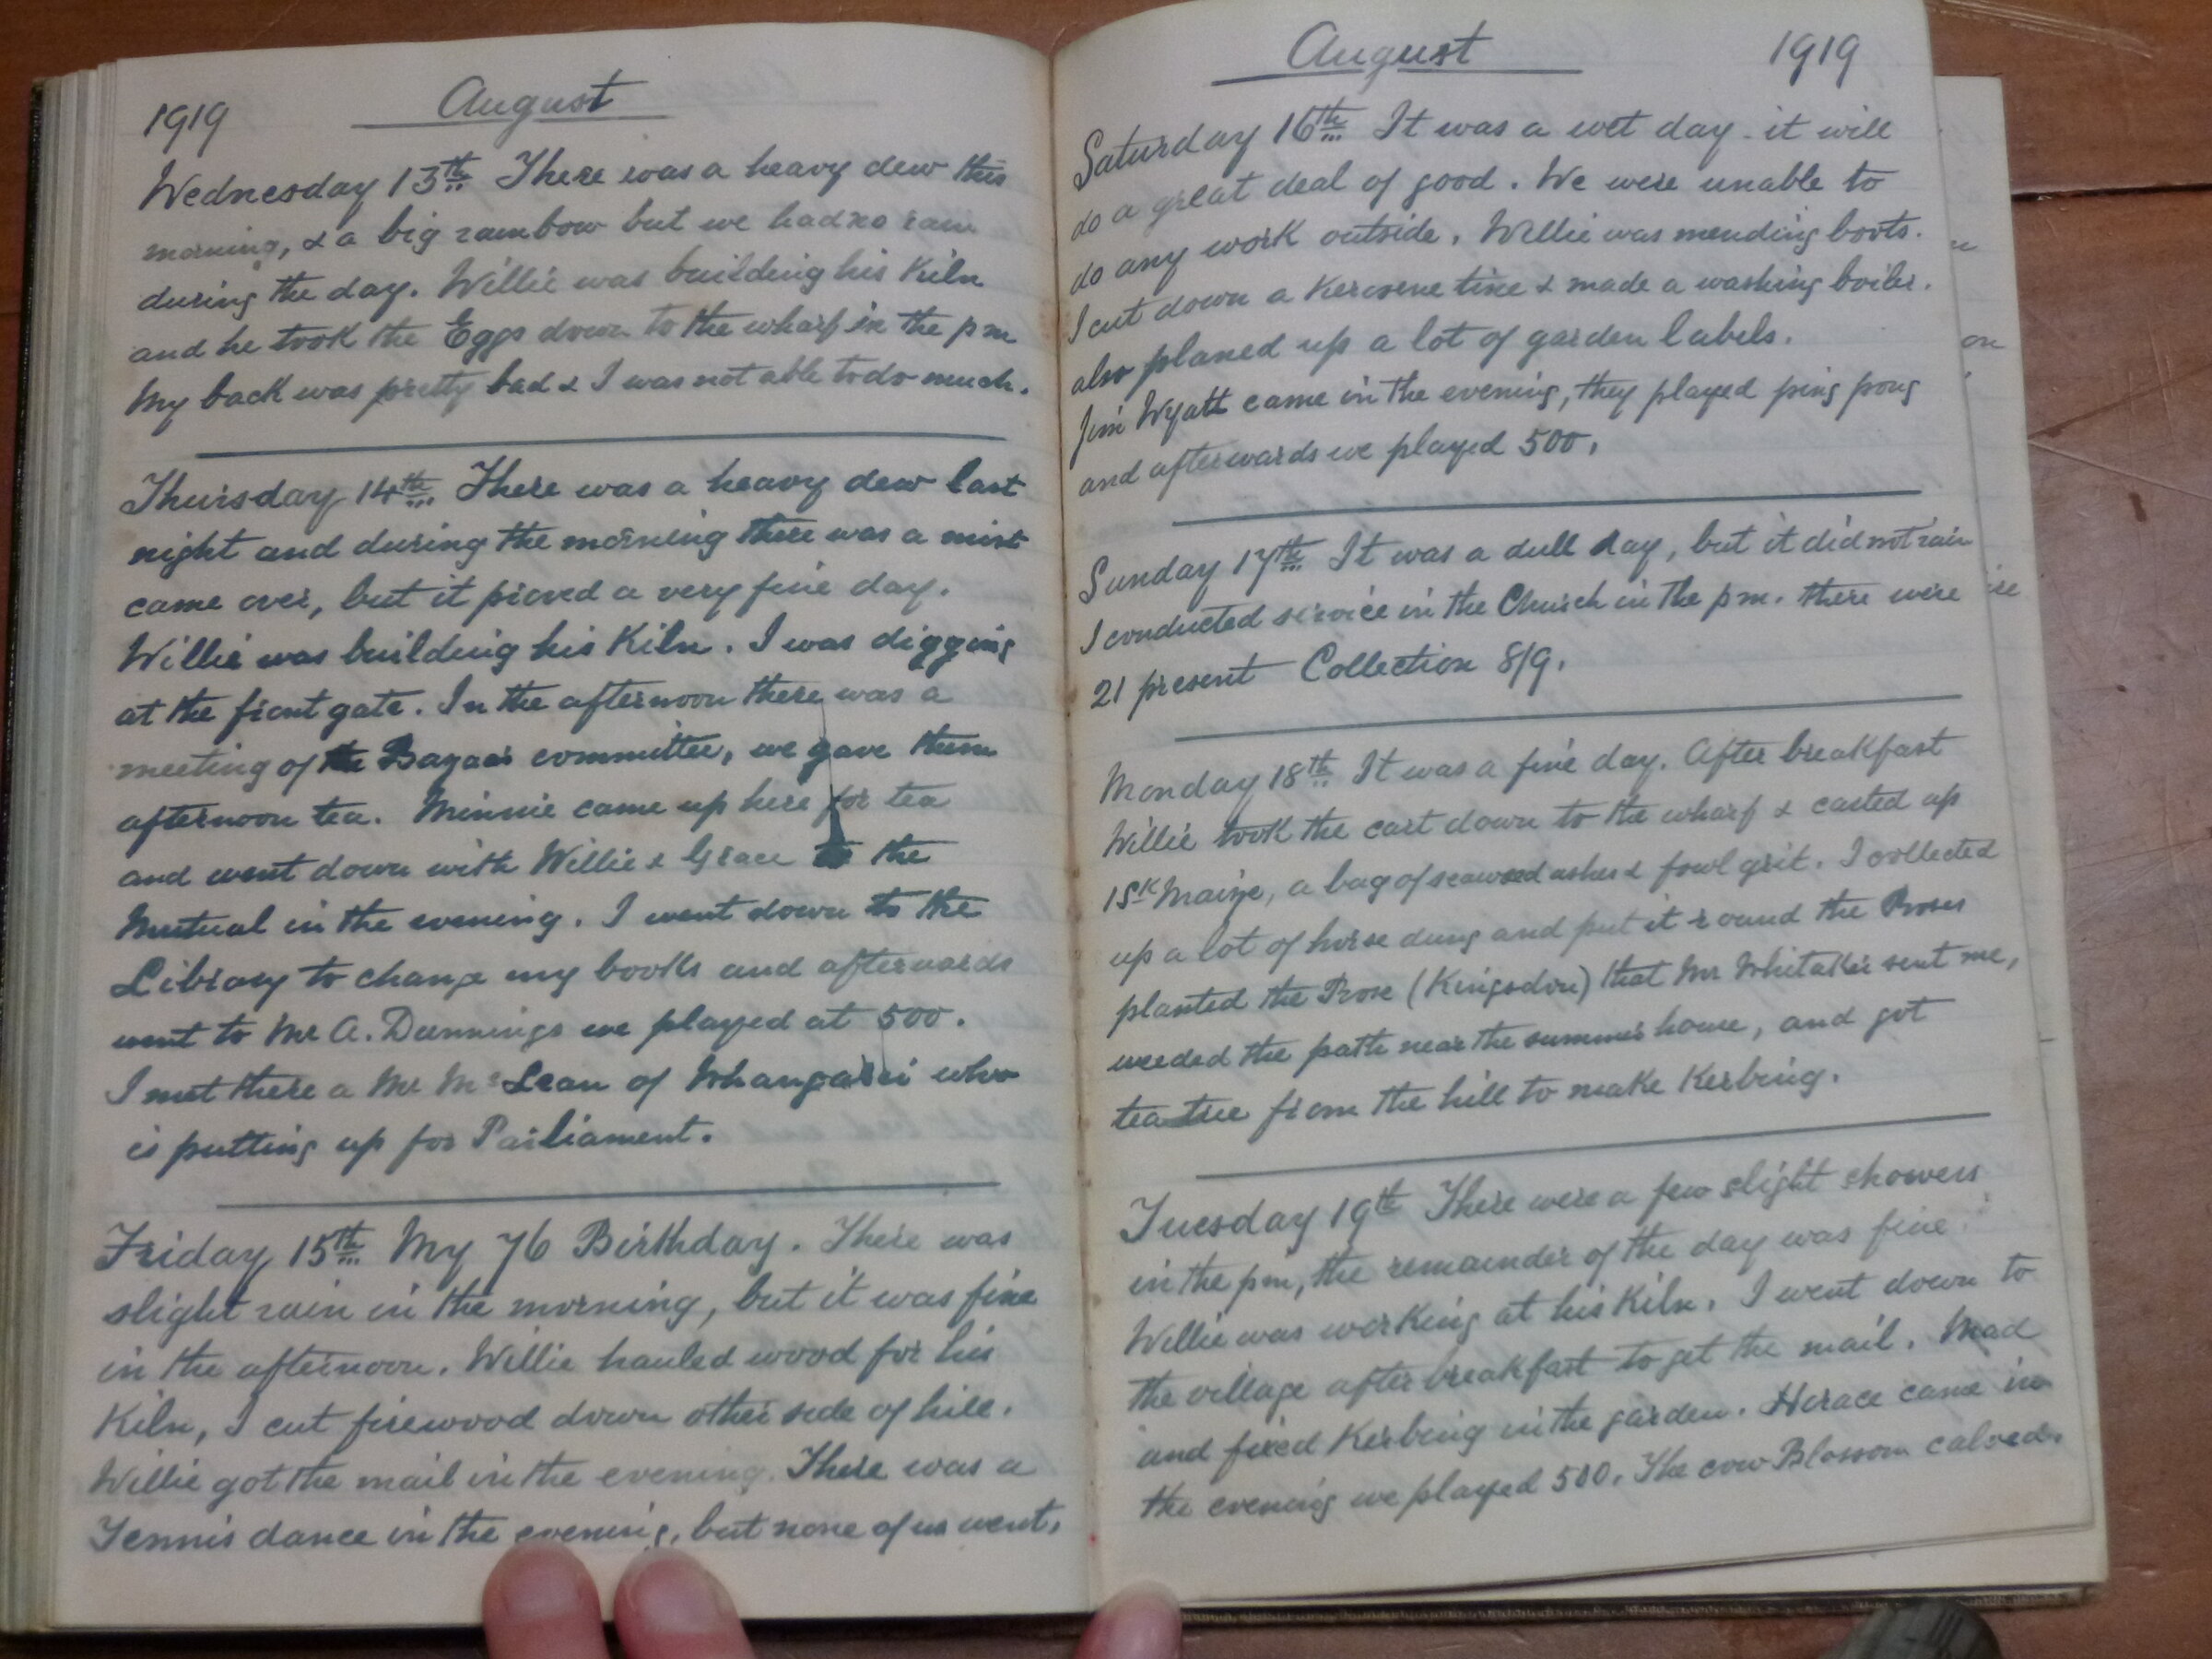 1919 August
Wednesday 13th There was a heavy dew this
morning, & a big rainbow but we had no rain
during the day. Willie was building his Kiln
and he took the Eggs down to the wharf in the pm
My back was pretty bad & I was not able to do much.
Thursday 14th There was a heavy dew last
night and during the morning there was a mist
came over, but it proved a very fine day.
Willie was building his Kiln. I was digging
at the front gate. In the afternoon there was a
meeting of the Bazaar committee, we gave them
afternoon tea. Minnie came up here for tea
and went down with Willie & Grace to the
Mutual in the evening. I went down to the
Library to change my books and afterwards
went to Mr A. Dunnings we played at 500.
I met there a Mr McLean of Whangarei who
is putting up for Parliament.
Friday 15th My 76 Birthday. There was
slight rain in the morning, but it was fine
in the afternoon. Willie hauled wood for his
Kiln, I cut firewood down other side of hill.
Willie got the mail in the evening. There was a
Tennis dance in the evening, but none of us went.
August 1919
Saturday 16th It was a wet day - it will
do a great deal of good. We were unable to
do any work outside. Willie was mending boots.
I cut down a Kerosene tine & made a washing boiler.
also planed up a lot of garden labels.
Jim Wyatt came in the evening, they played ping pong
and afterwards we played 500.
Sunday 17th It was a dull day, but it did not rain
I conducted service in the Church in the pm. there were
21 present Collection 8/9.
Monday 18th It was a fine day. After breakfast
Willie took the cart down to the wharf & carted up
1 SK Maize, a bag of seaweed ashes & fowl grit. I collected
up a lot of horse dung and put it round the Roses
planted the Rose (Kingsdon) that Mr Whitaker sent me,
weeded the path near the summer house, and got
teatree from the hill to make Kerbing.
Tuesday 19th There were a few slight showers
in the pm, the remainder of the day was fine
Willie was working at his Kiln. I went down to
the village after breakfast to get the mail. Mad
and fixed Kerbing in the garden. Horace came in
the evening we played 500. The cow Blossom calved.